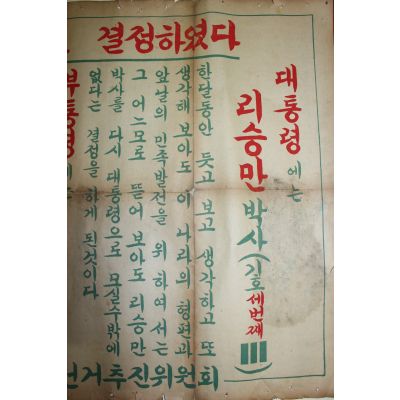 결정하였다
대통령에는
리승만 박사 (기호 세번째 III)
한달동안 듯고 보고 생각하고 또
생각해 보아도 이 나라의 형편과
앞날의 민족발전을 위하여서는
그 어느모로 뜯어 보아도 리승만
박사를 다시 대통령으로 모실수밖에
없다는 결정을 하게 된것이다
부통령
선거추진위원회